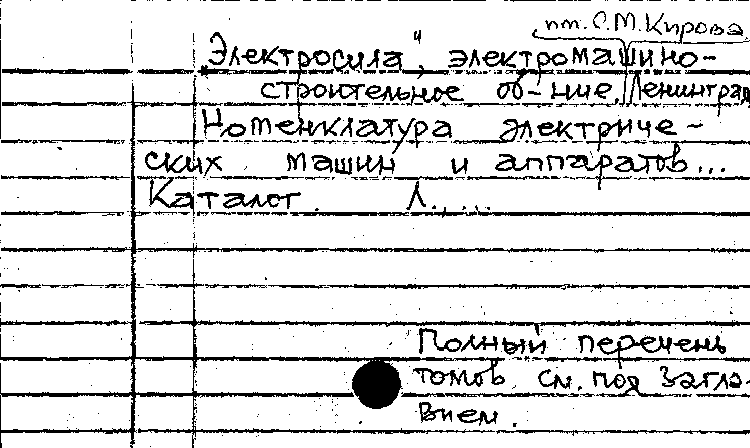 им. С.М. Кирова
"Электросила", электромашино-
строительное об-ние, Ленинград
Номенклатура электриче-
ских машин и аппаратов...
Каталог. Л., ...
Полный перечень
томов см. под загла-
вием.